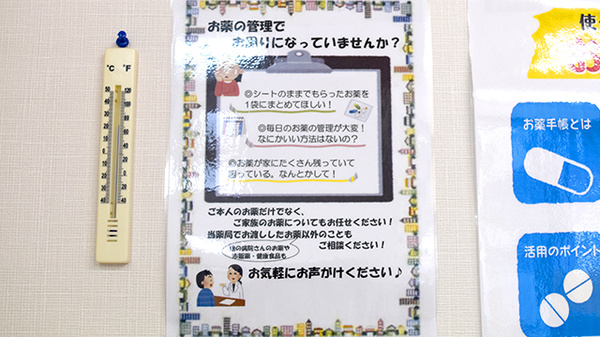 °C °F
50 120
40 100
30 80
20 60
10 40
0 20
10 0
20
30 20
40 40
お薬の管理で
お困りになっていませんか?
◎シートのままでもらったお薬を
1袋にまとめてほしい!
◎毎日のお薬の管理が大変!
なにかいい方法はないの?
◎お薬が家にたくさん残っていて
困っている。なんとかして!
ご本人のお薬だけでなく、
ご家族のお薬についてもお任せください!
当薬局でお渡ししたお薬以外のことも
ご相談ください!
他の病院さんのお薬や
市販薬・健康食品も
お気軽にお声がけください♪
使
お薬手帳とは
活用のポイント